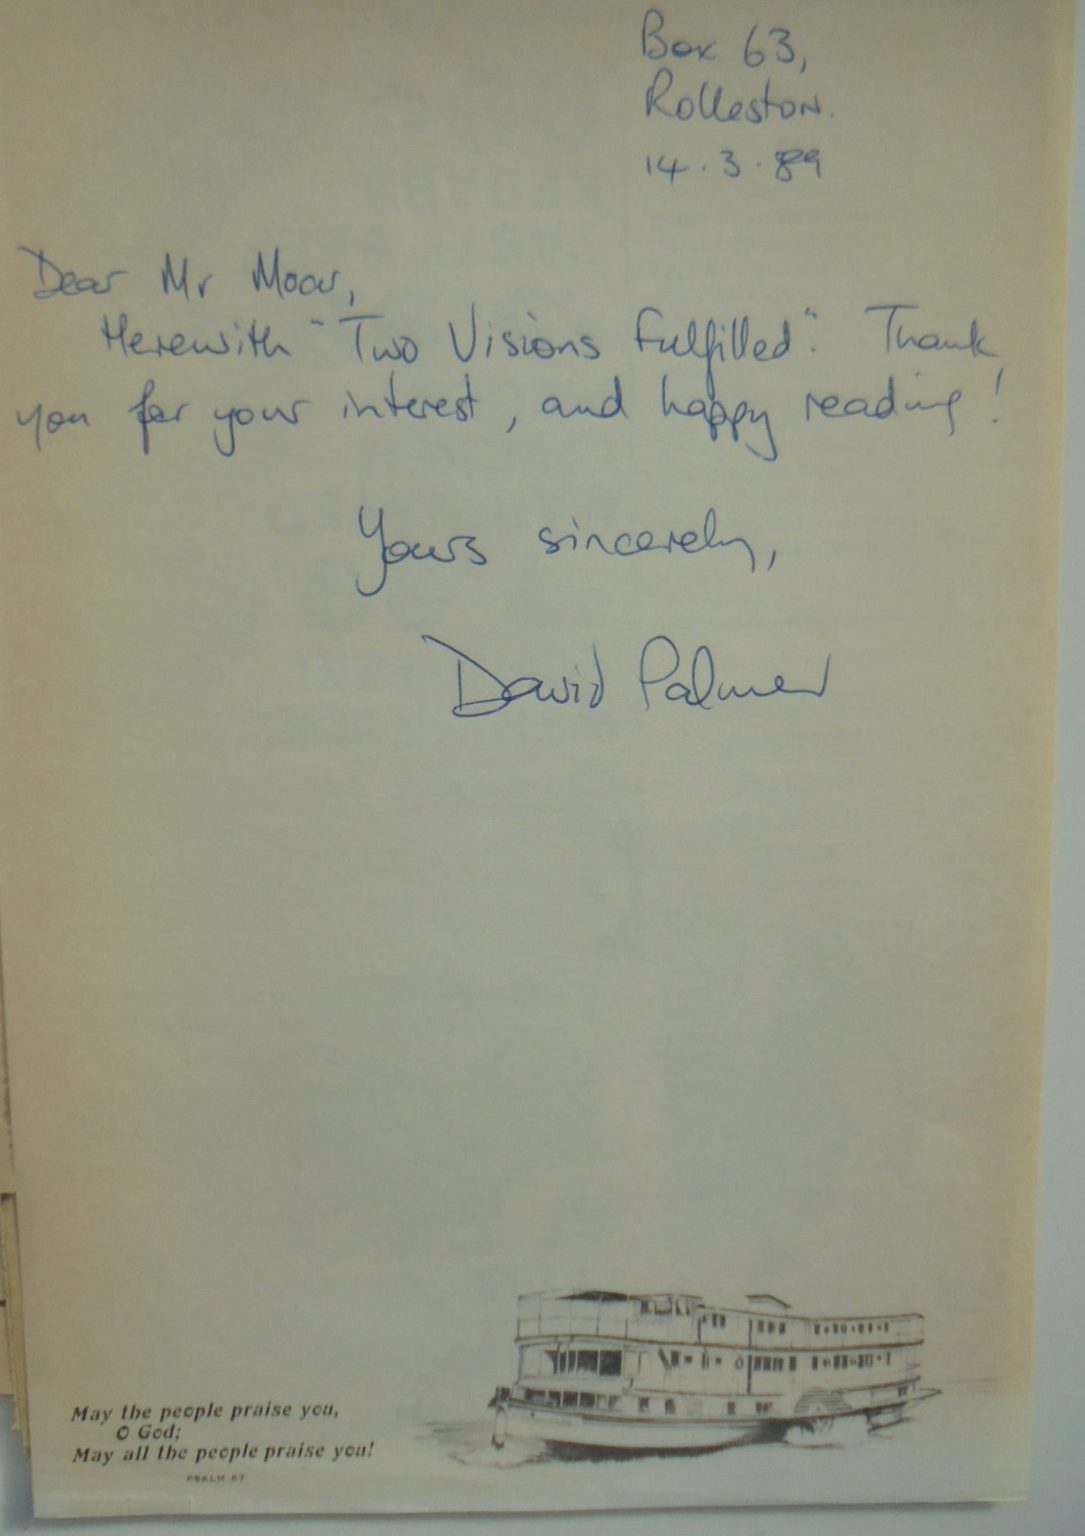 Box 63,
Rolleston.
14.3.89
Dear Mr Moar,
Herewith "Two Visions Fulfilled". Thank
you for your interest, and happy reading!
Yours sincerely,
David Palmer
May the people praise you,
O God;
May all the people praise you!
PSALM 67